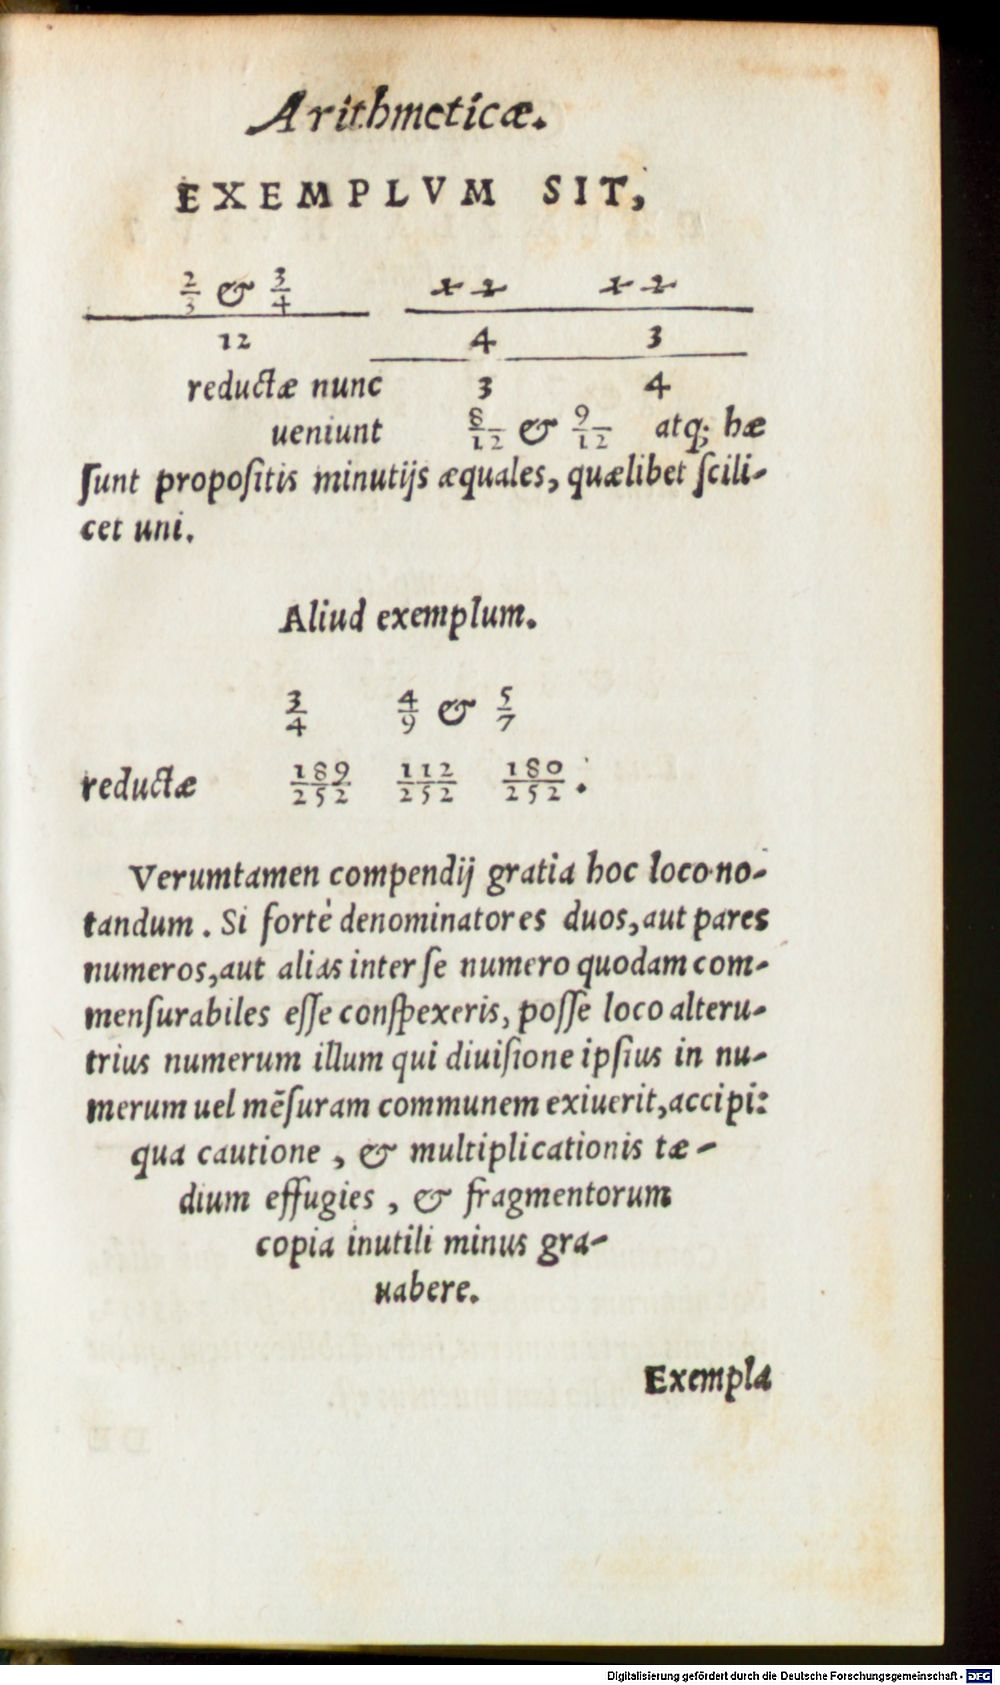 Arithmeticæ.
EXEMPLVM SIT,
2/3 & 3/4 12 12
12 4 3
reductæ nunc 3 4
ueniunt 8/12 & 9/12 atq; hæ
ſunt propoſitis minutijs æquales, quælibet ſcili-
cet uni.
Aliud exemplum.
3/4 4/9 & 5/7
reductæ 189/252 112/252 180/252.
Verumtamen compendij gratia hoc loco no-
tandum. Si fortè denominatores duos, aut pares
numeros, aut alias inter ſe numero quodam com-
menſurabiles eſſe conſpexeris, poſſe loco alteru-
trius numerum illum qui diuiſione ipſius in nu-
merum uel mẽſuram communem exiuerit, accipi:
qua cautione, & multiplicationis tæ-
dium effugies, & fragmentorum
copia inutili minus gra-
uabere.
Exempla
Digitalisierung gefördert durch die Deutsche Forschungsgemeinschaft - DFG